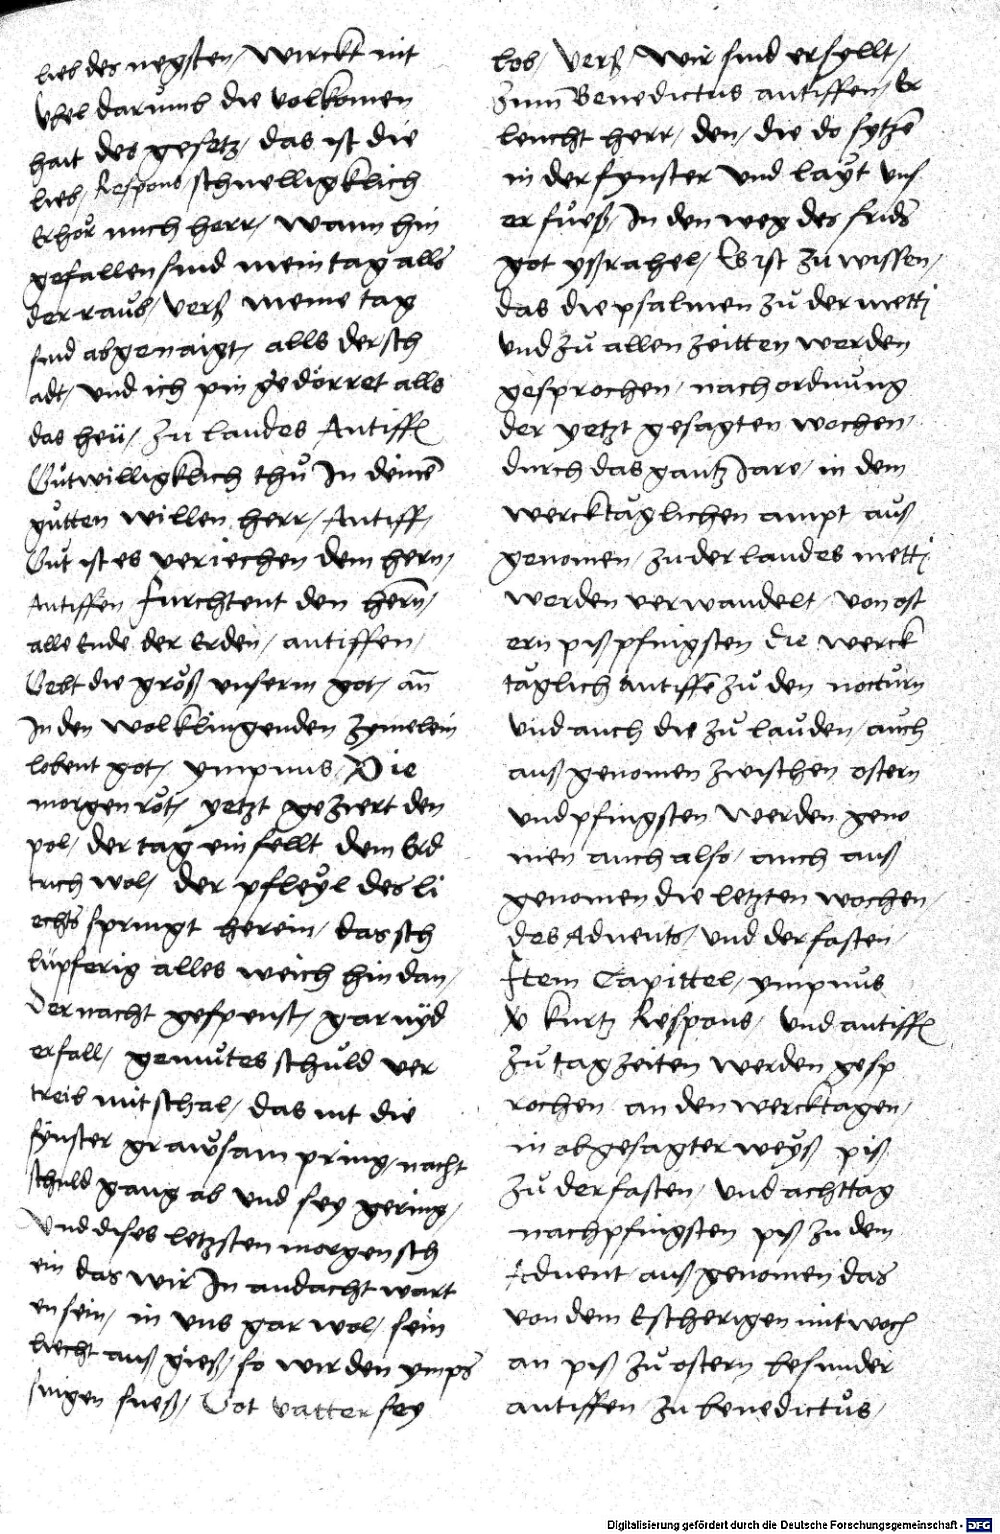 lieb des negsten / wirckt nit
vbel darumb die volkomen
hait des gesetz / das ist die
lieb / Respons schnelligklich
Erhör mich herr / wann hin
gefallen sind mein tag alls
der raub / verß meine tag
sind abgenaigt / alls der sch
adt / und ich pin gedörret alls
das heü / zu laudes Antiff
Gůtwilligklich thů In deinē
gůtten willen herr / Antiff /
Gůt ist es veriechen dem hern /
Antiffen fürchtent den herñ /
alle Ende der Erden / antiffen /
Gebt die größ unserm got / añ
In den wolklingenden zymelein
lobent got / ympnus / Die
morgen röt / yetzt geziert den
pol / der tag ein fellt dem Erd
trich wol / der pfleyl des li
echts springt herein / das sch
lüpferig alles weich hin dan /
Der nacht gespenst / gar nyd
erfall / gemütes schuld ver
treib mit schal / das nit die
fynster grawsam pring / nacht
schuld gang ab und sey gering /
Vnd dises letzsten morgen sch
ein das wir In andacht wart
en sein / in uns gar wol / sein
liecht auß gieß / so wir den ymps
singen sueß / Got vatter sey
lob / Verß / wir sind erfyllt /
Zum Benedictus antiffen / Er
leucht herr / den / die do sytzē
in der fynster und layt uns
er füeß / In den weg des frids
got ysrahel / Es ist zu wissen /
das die psalmen zů der metti
und zů allen zeitten werden
gesprochen / nach ordnung
der yetzt gesagten wochen /
durch das gantz Jare / in dem
wercktäglichen ampt auß
genomen / zu der laudes metti
werden verwandelt / von ost
ern piß pfingsten die werck
täglich antiffē zů den nocturn
und auch die zů lauden / auch
auß genomen zwischen ostern
und pfingsten werden geno
men auch also / auch auß
genomen die letzten wochen /
des Advents / und der fasten /
Item Capittel / ympnus
v kurtz Respons / und antiff
zů tagzeiten werden gesp
rochen an den wercktagen /
in obgesagter weyß piß
zů der fasten / und achttag
nach pfingsten piß zu dem
Advent / auß genomen das
von dem Escherigen mitwoch
an piß zů ostern besunder
antiffen zu benedictus /
Digitalisierung gefördert durch die Deutsche Forschungsgemeinschaft - DFG